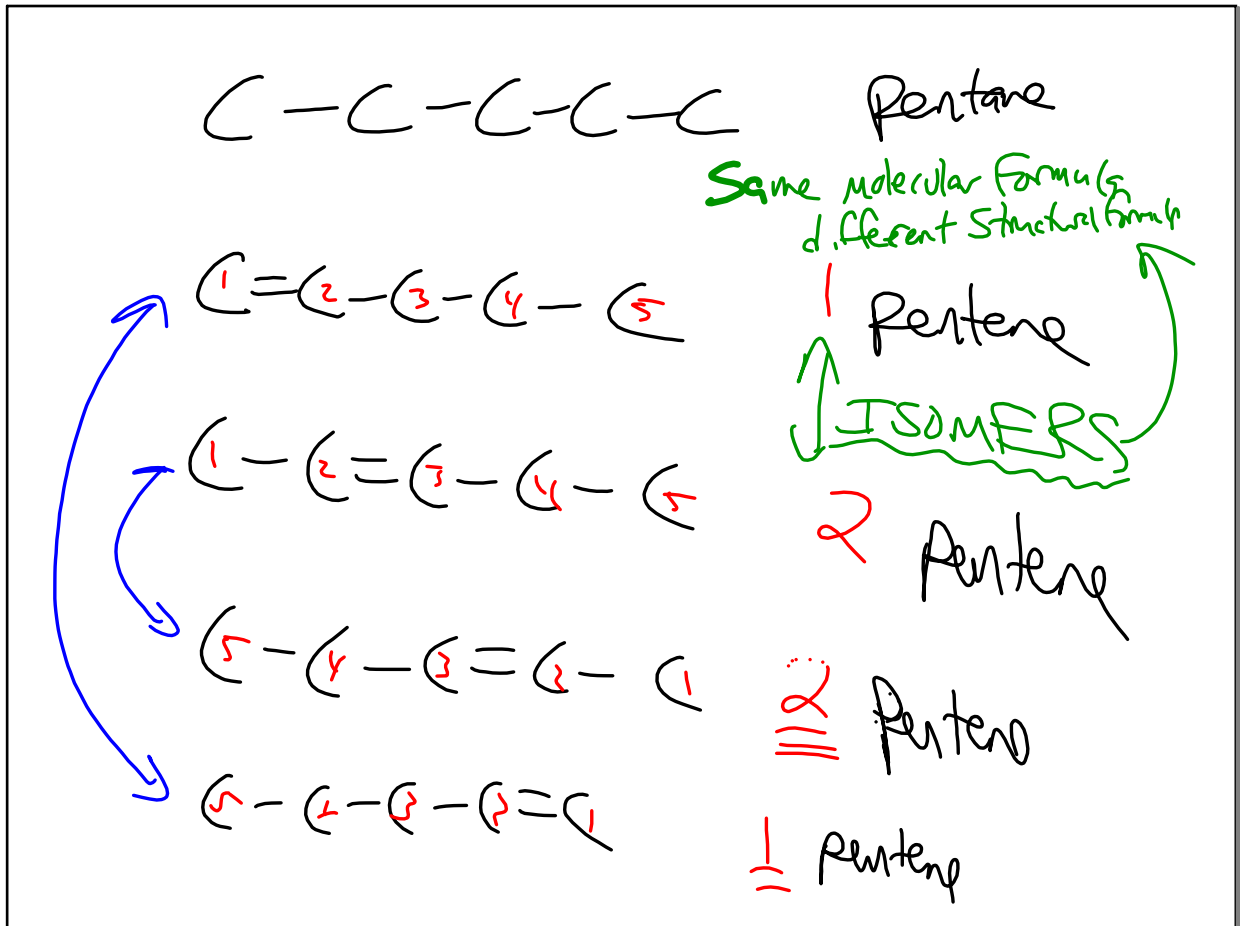 C — C — C — C — C Pentane
Same molecular Formula
different Structural Formula
C1 = C2 — C3 — C4 — C5 1 Pentene
ISOMERS
C1 — C2 = C3 — C4 — C5 2 Pentene
C5 — C4 — C3 = C2 — C1 2 Pentene
C5 — C4 — C3 — C2 = C1 1 pentene